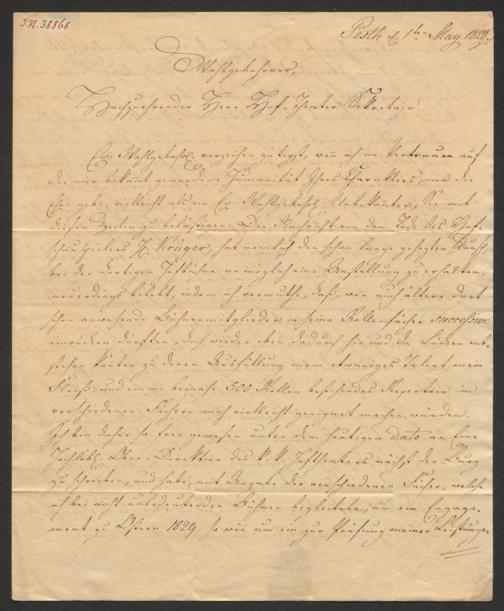 I.N. 38868
Pesth d. 1ten May 1828.
Wohlgebohrner,
Hochzuehrender Herr Hof-Theater Sekretair.
Ew. Wohlgebohrn verzeihen gütigst, wenn ich im Vertrauen auf
die mir bekant gewordene Humanität Ihres Charakters, mir die
Ehre gebe, vielleicht als ein Ew. Wohlgebohrn Unbekanter, Sie mit
diesen Zeilen zu belästigen. Die Nachricht von dem Tode des Hof-
schauspielers H. Krüger, hat nemlich den schon lange gehegten Wunsch
bei der dortigen Hofbühne wo möglich eine Anstellung zu erhalten,
neuerdings belebt, indem ich vermuthe, daß, wenn auch ältere dort
schon anwesende Bühnenmitglieder in seine Rollenfächer successive
einrücken dürften, doch wieder eben dadurch hie und da Lücken ent-
stehen könten zu deren Ausfüllung mein etwaniges Talent, mein
Fleiß, und ein in beinahe 500 Rollen bestehendes Repertoir in
verschiedenen Fächern mich vielleicht geeignet machen würden.
Ich bin daher so frei gewesen unter dem heutigen dato an Eine
Hochlöbl. Ober-Direktion des k. k. Hoftheaters nächst der Burg
zu schreiben, und habe, mit Angabe der verschiedenen Fächer, welche
ich bei nicht unbedeutenden Bühnen begleitete, um ein Engage-
ment zu Ostern 1829 so wie um ein zur Prüfung meiner Leistungen